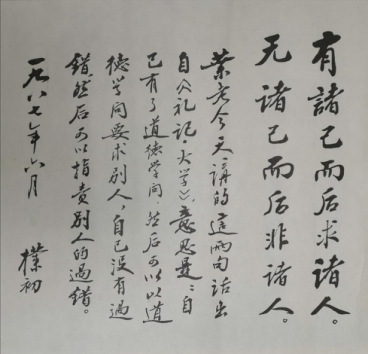 有諸己而后求諸人。
无諸己而后非諸人。
葉老今天講的這两句话出
自《礼记·大学》,意思是:自
己有了道德学问,然后可以以道
德学问要求别人,自己没有过
錯,然后可以指责别人的過錯。
一九八七年六月
樸初